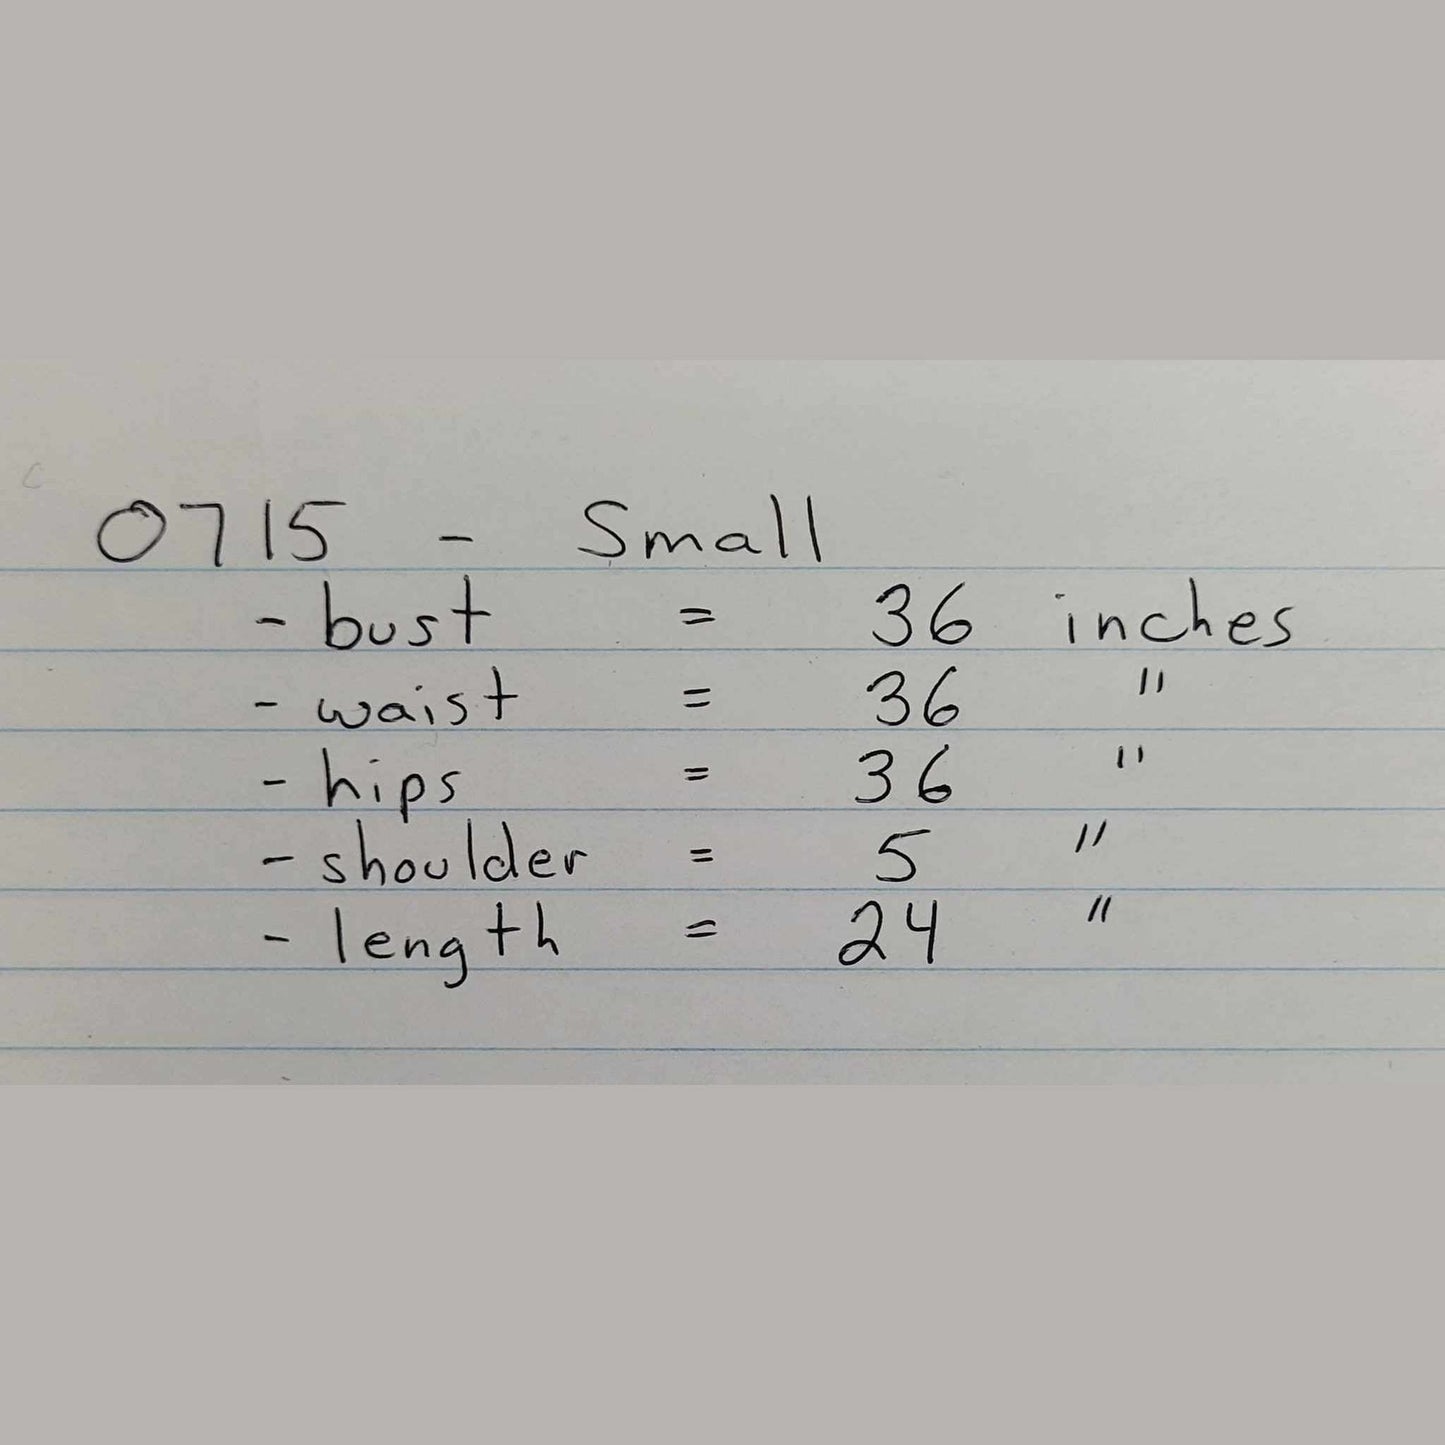 0715 - Small
- bust = 36 inches
- waist = 36 "
- hips = 36 "
- shoulder = 5 "
- length = 24 "